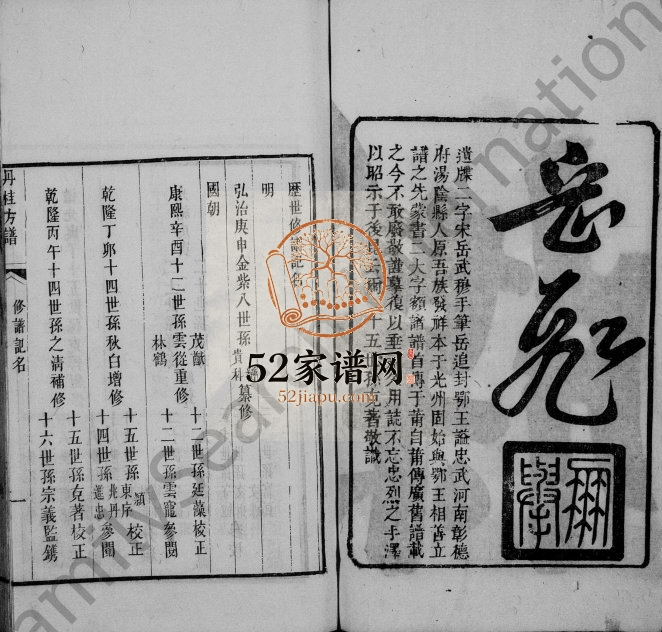 岳飛
遺牒二字宋岳武穆手筆岳追封鄂王謚忠武河南彰德
府湯陰縣人原吾族發祥本于光州固始與鄂王相善立
譜之先蒙書二大字額諸譜自傳于莆自莆傳廣舊譜載
之今不敢廢敬謹摹復以垂 久用誌不忘忠烈之手澤
以昭示于後 十五 著敬識
歷世修譜記名
明
弘治庚申金紫八世孫 貴科 纂修
國朝
康熙辛酉十二世孫雲從重修
茂猷
林鶴
十二世孫廷藻校正
十二世孫雲龍參閱
乾隆丁卯十四世孫秋白增修
十五世孫 東序 校正
十四世孫 兆丹 進忠 參閱
乾隆丙午十四世孫之清補修
十五世孫克著校正
十六世孫宗義監鐫
丹桂方譜
修譜記名
一
52家谱网
52jiapu.com
FamilySearch International